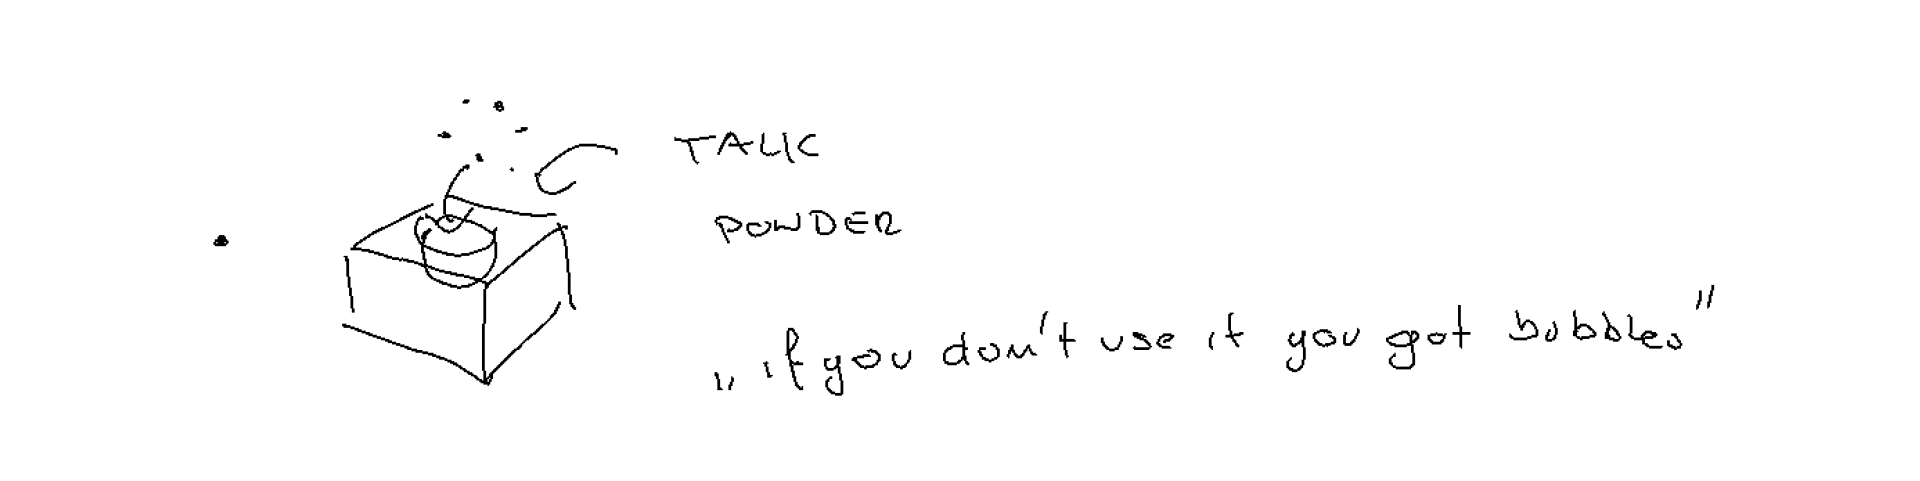 TALIC
POWDER
„if you don't use it you got bubbles"